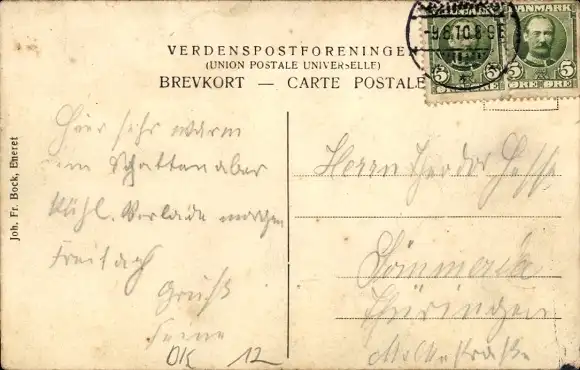 VERDENSPOSTFORENINGEN
(UNION POSTALE UNIVERSELLE)
BREVKORT — CARTE POSTALE
DANMARK
5 5
ØRE ØRE
DANMARK
5 5
ØRE ØRE
-9.6.10.8-9E
Joh. Fr. Bock, Eneret
Hier sehr warm
im Schatten aber
kühl. Verlade morgen
Freitag
Gruß
Herrn Theodor Hesse
Sömmerda
Thüringen
OK 12